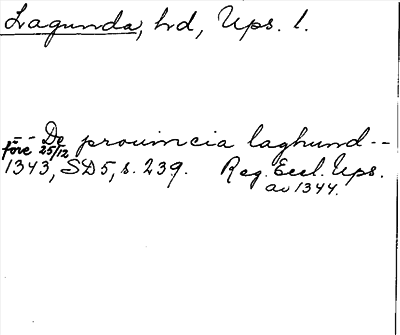 Lagunda, hd, Ups. l.
-- De prouincia laghund --
före 25/12
1343, SD5, s. 239. Reg. Eccl. Ups.
av 1344.